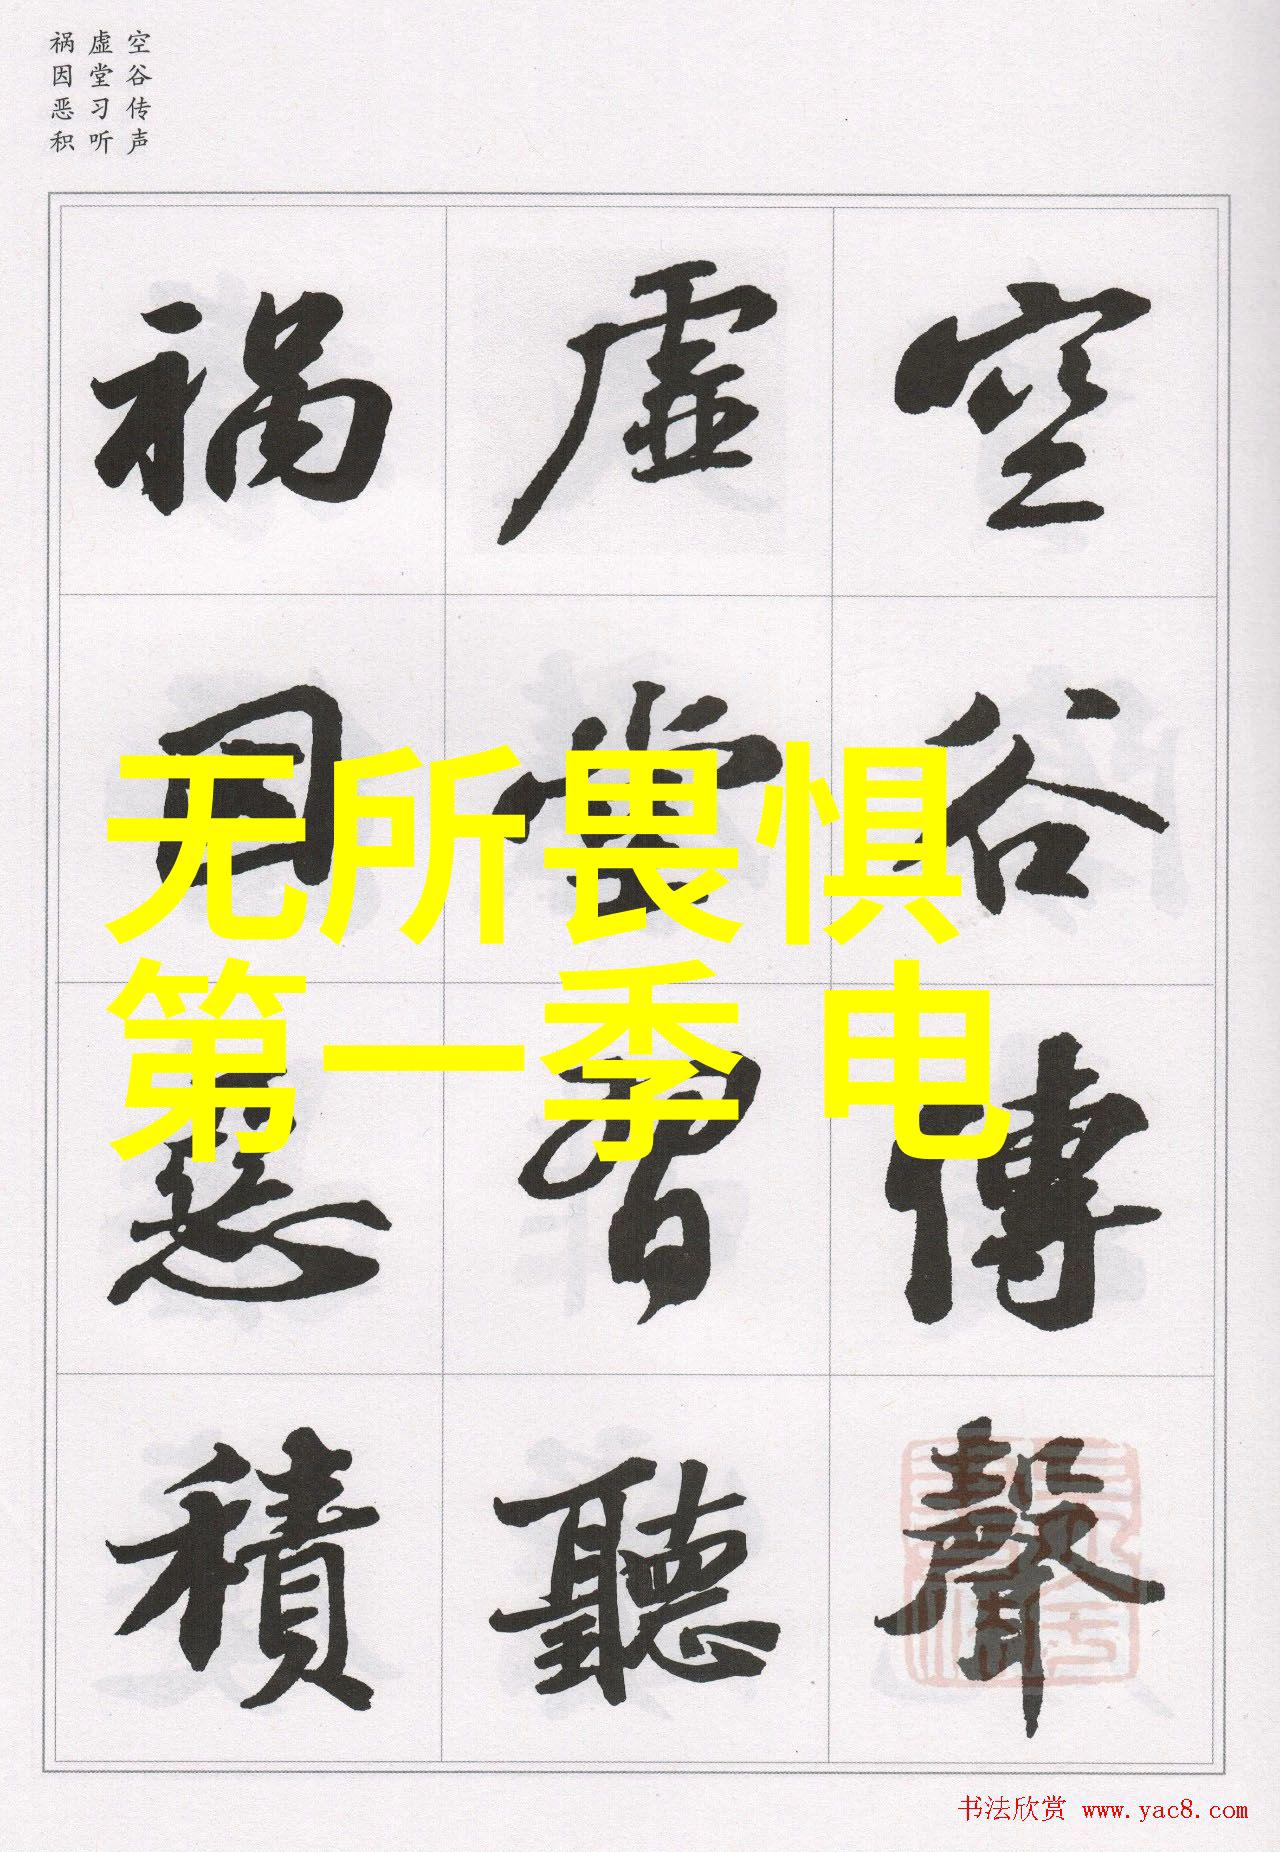 空谷传声
虚堂习听
祸因恶积
空谷傳聲
虚堂習聽
禍因惡積
无所畏惧
第一季 电
书法欣赏 www.yac8.com